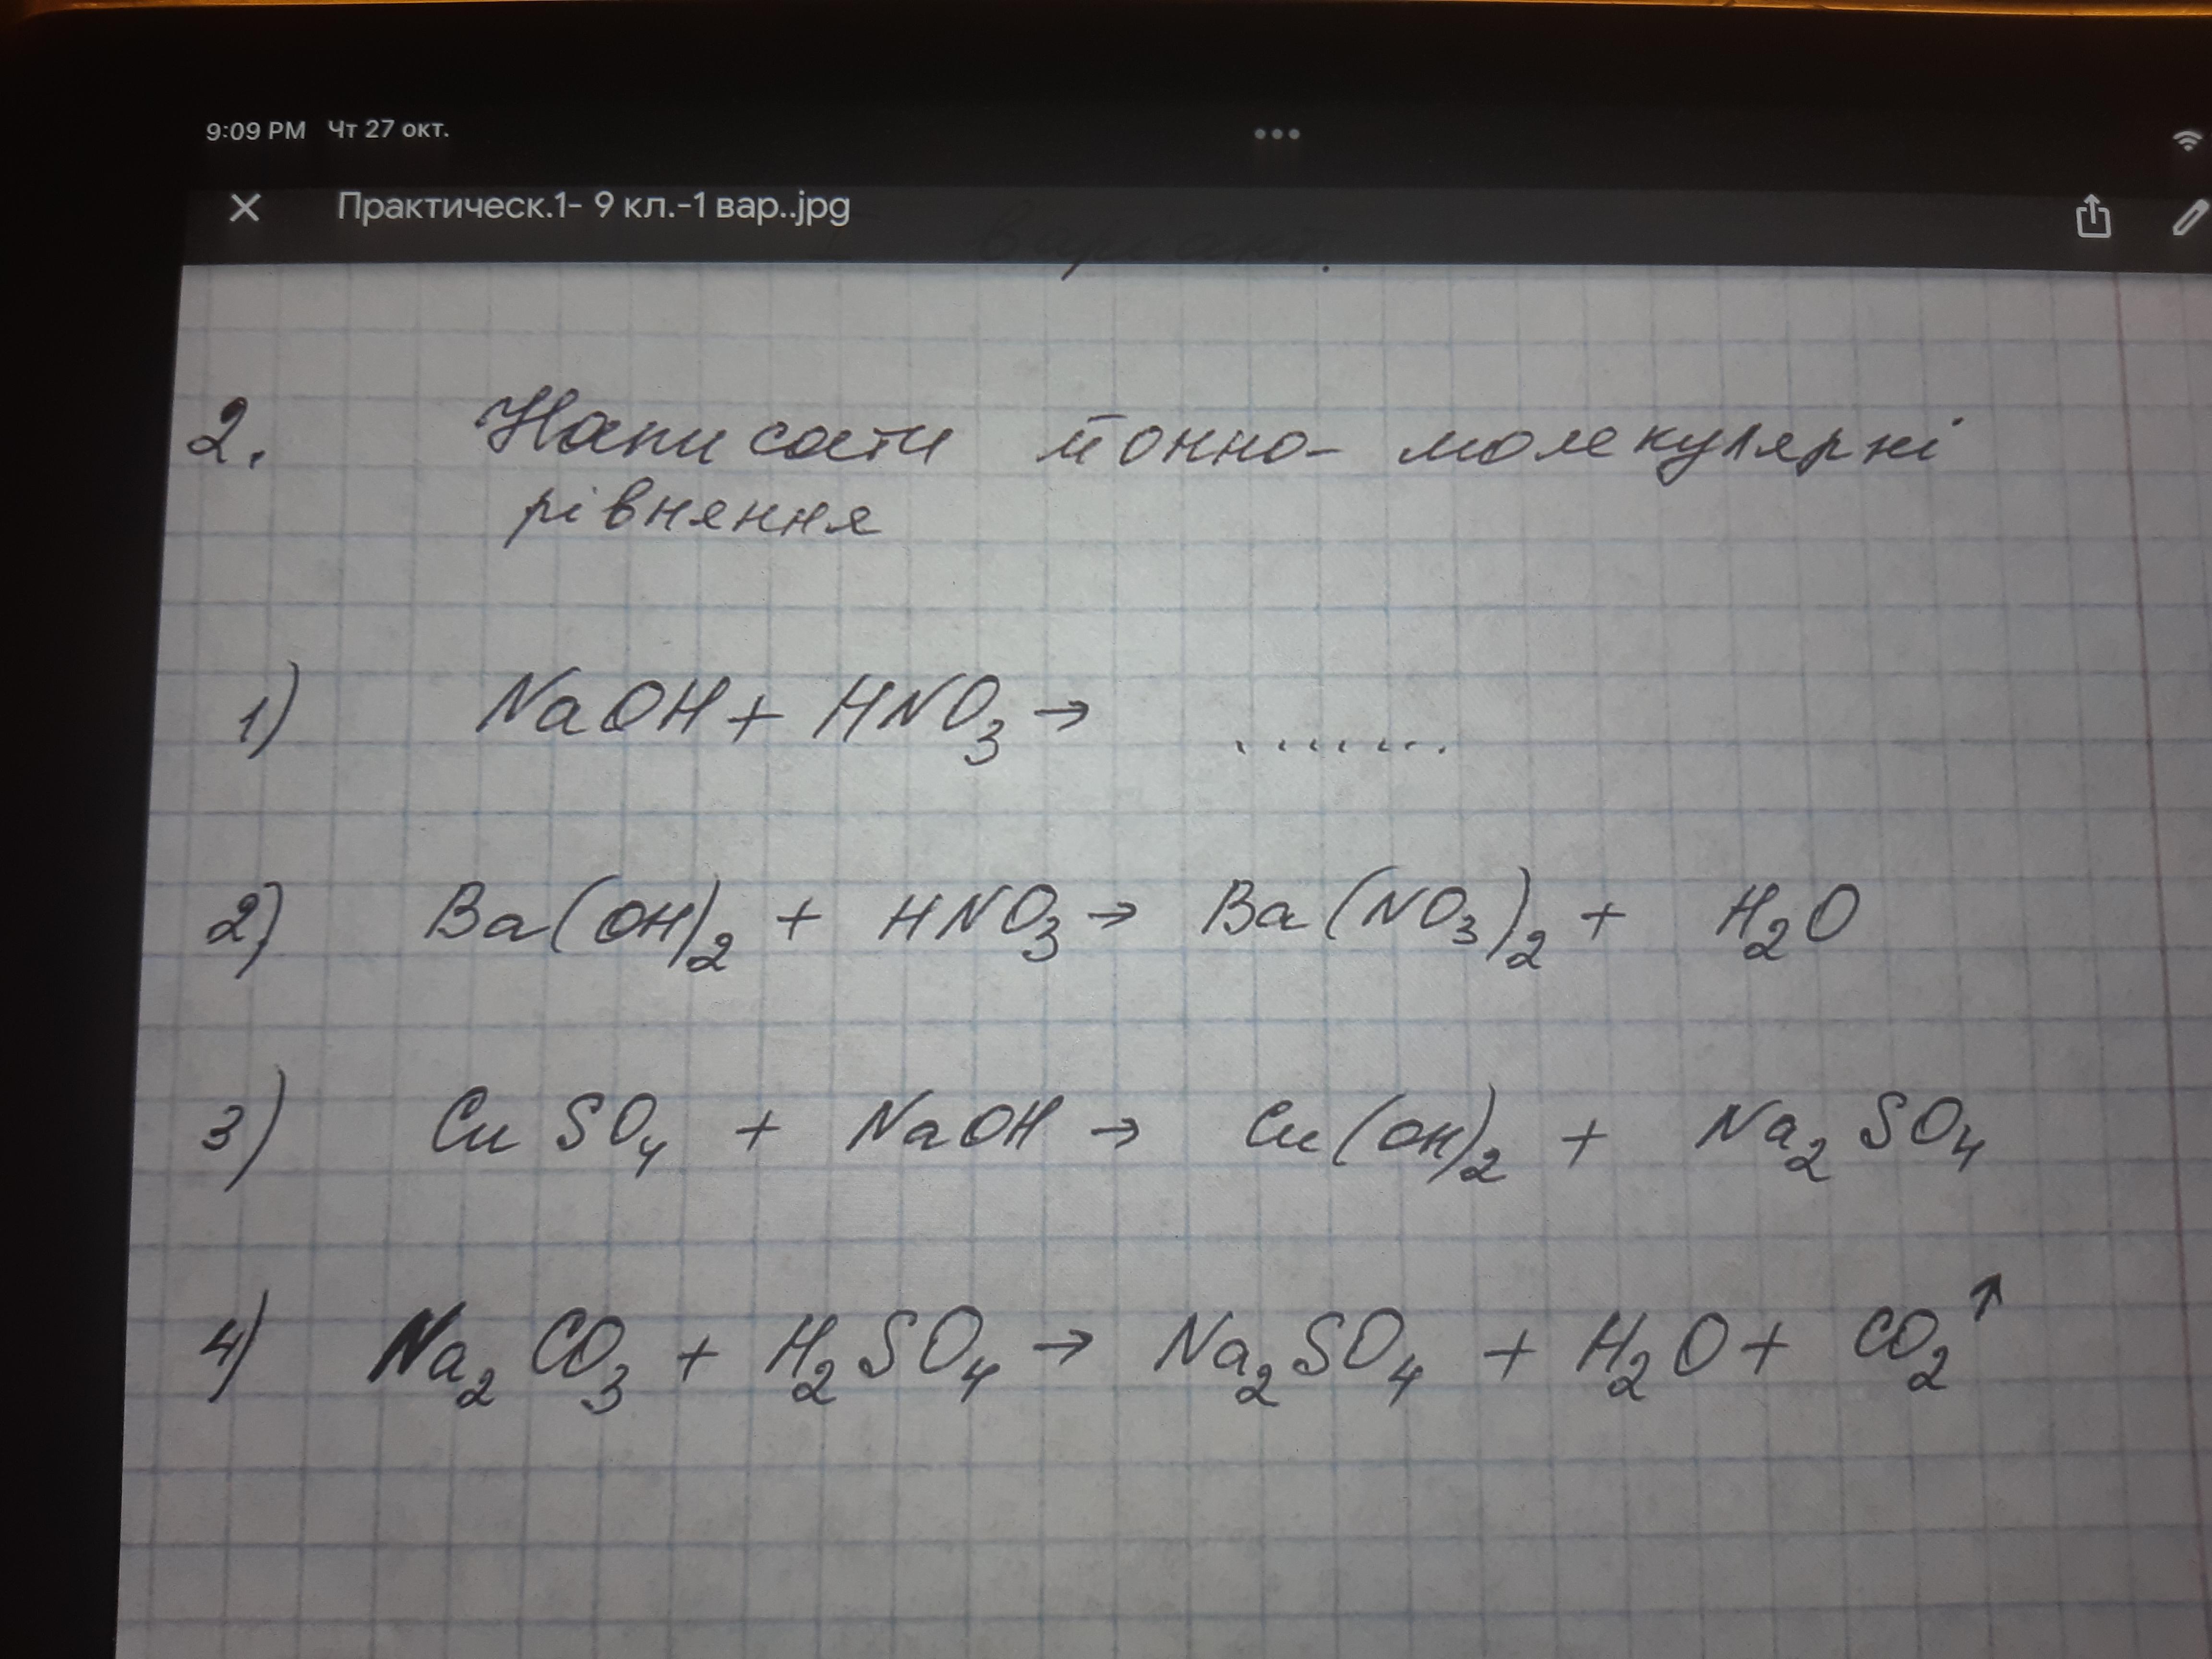 9:09 PM Чт 27 окт.
Практическ.1- 9 кл.-1 вар..jpg
варіант.
2. Написати йонно- молекулярні
рівняння
1) NaOH + HNO₃ → ........
2) Ba(OH)₂ + HNO₃ → Ba(NO₃)₂ + H₂O
3) CuSO₄ + NaOH → Cu(OH)₂ + Na₂SO₄
4) Na₂CO₃ + H₂SO₄ → Na₂SO₄ + H₂O + CO₂↑